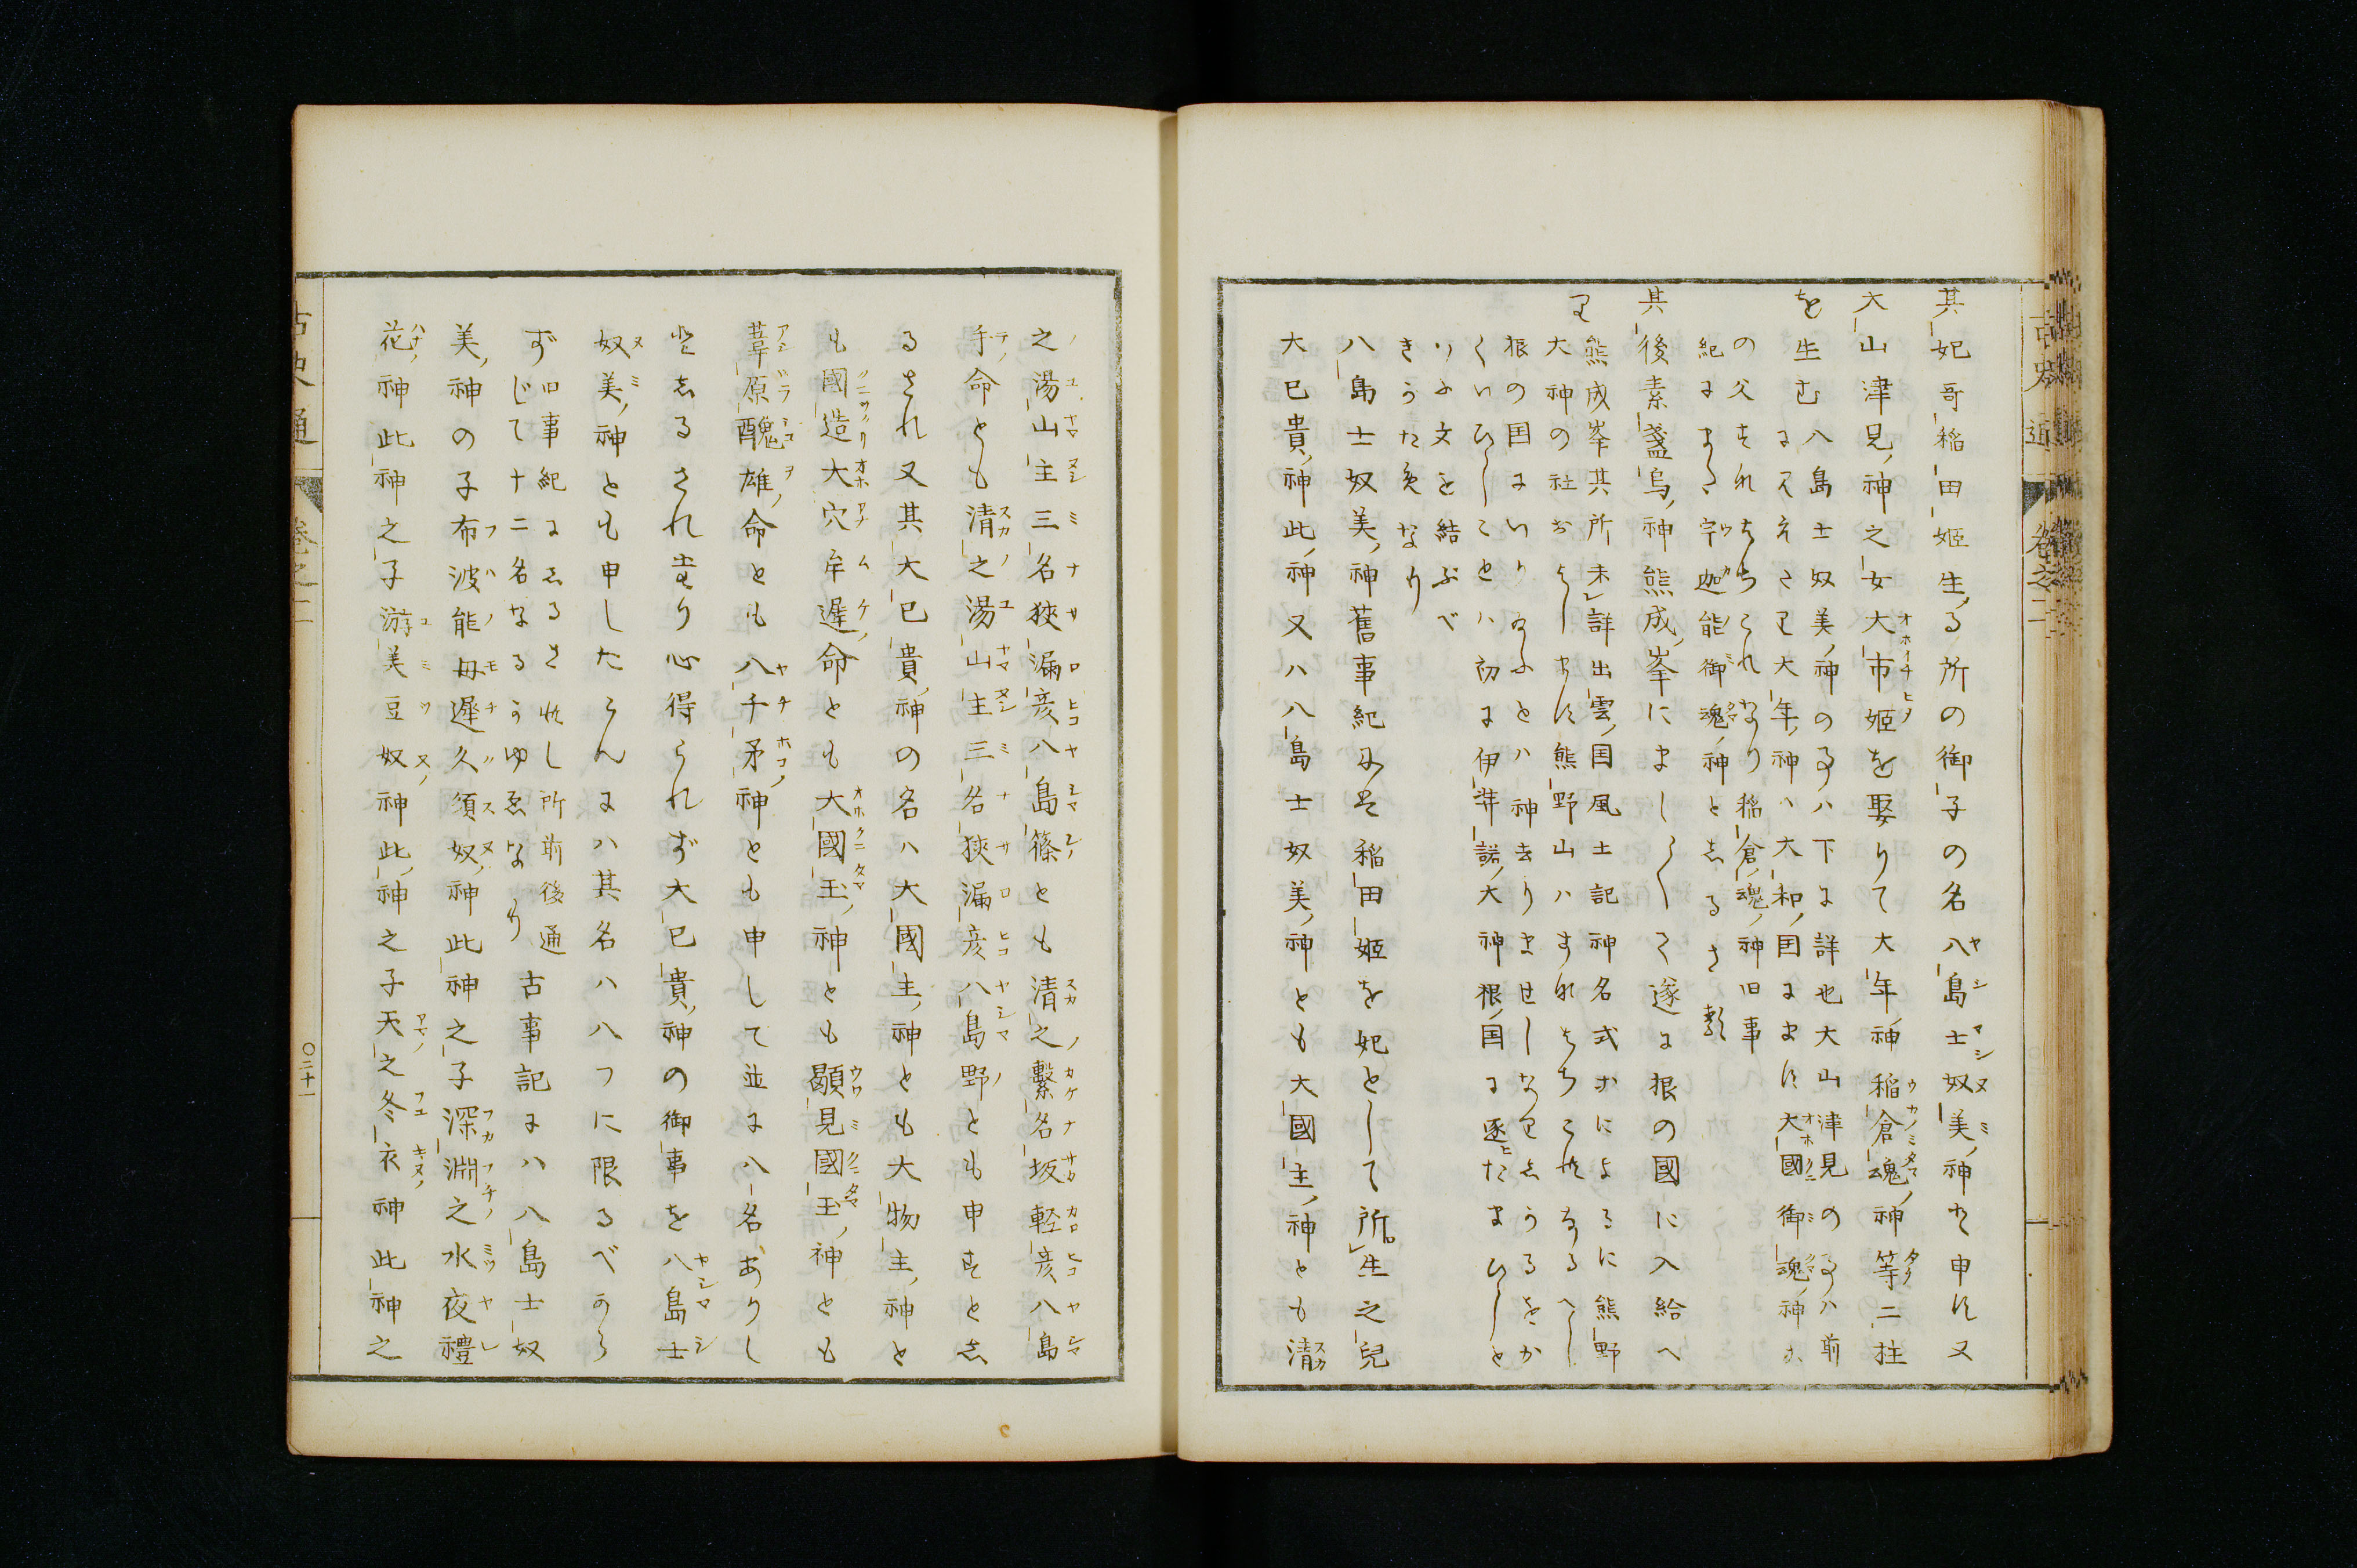 其妃哥稲田姫生る所の御子の名八島士奴美神と申す又
大山津見神之女大市姫を娶りて大年神稲倉魂神等二柱
を生む八島士奴美神の事ハ下に詳也大山津見の事ハ前
に見えたり大年神ハ大和国にます大國御魂神
の父すなはちこれなり稲倉魂神旧事
紀にまた宇迦能御魂神としるされ
其後素盞烏神熊成峯にましまして遂に根の國に入給へ
り
熊成峯其所未詳出雲国風土記神名式等によるに熊野
大神の社おはします熊野山ハすなはちこれなるへし
根の国にいり給ふとハ神去りませしなり
くいひしことハ初に伊弉諾大神根国に逐たまひしと
いふ文と結ぶべ
きうため なり
八島士奴美神舊事紀には稲田姫を妃として所生之兒
大已貴神此神又ハ八島士奴美神とも大國主神とも清
之湯山主三名狹漏彦八島篠とも清之繫名坂軽彦八島
手命とも清之湯山主三名狹漏彦八島野とも申すとし
るされ又其大已貴神の名ハ大國主神とも大物主神と
も國造大穴牟遅命とも大國玉神とも顕見國玉神とも
葦原醜雄命とも八千矛神とも申して並に八名ありし
としるされたり心得られず大已貴神の御事を八島士
奴美神とも申したらんにハ其名ハ八つに限るべから
ず旧事紀にしるされし所前後通
じて十二名なるうゆゑなり
古事記にハ八島士奴
美神の子布波能母遅久須奴神此神之子深淵之水夜禮
花神此神之子游美豆奴神此神之子天之冬衣神此神之
古史通
巻之二
〇二十一